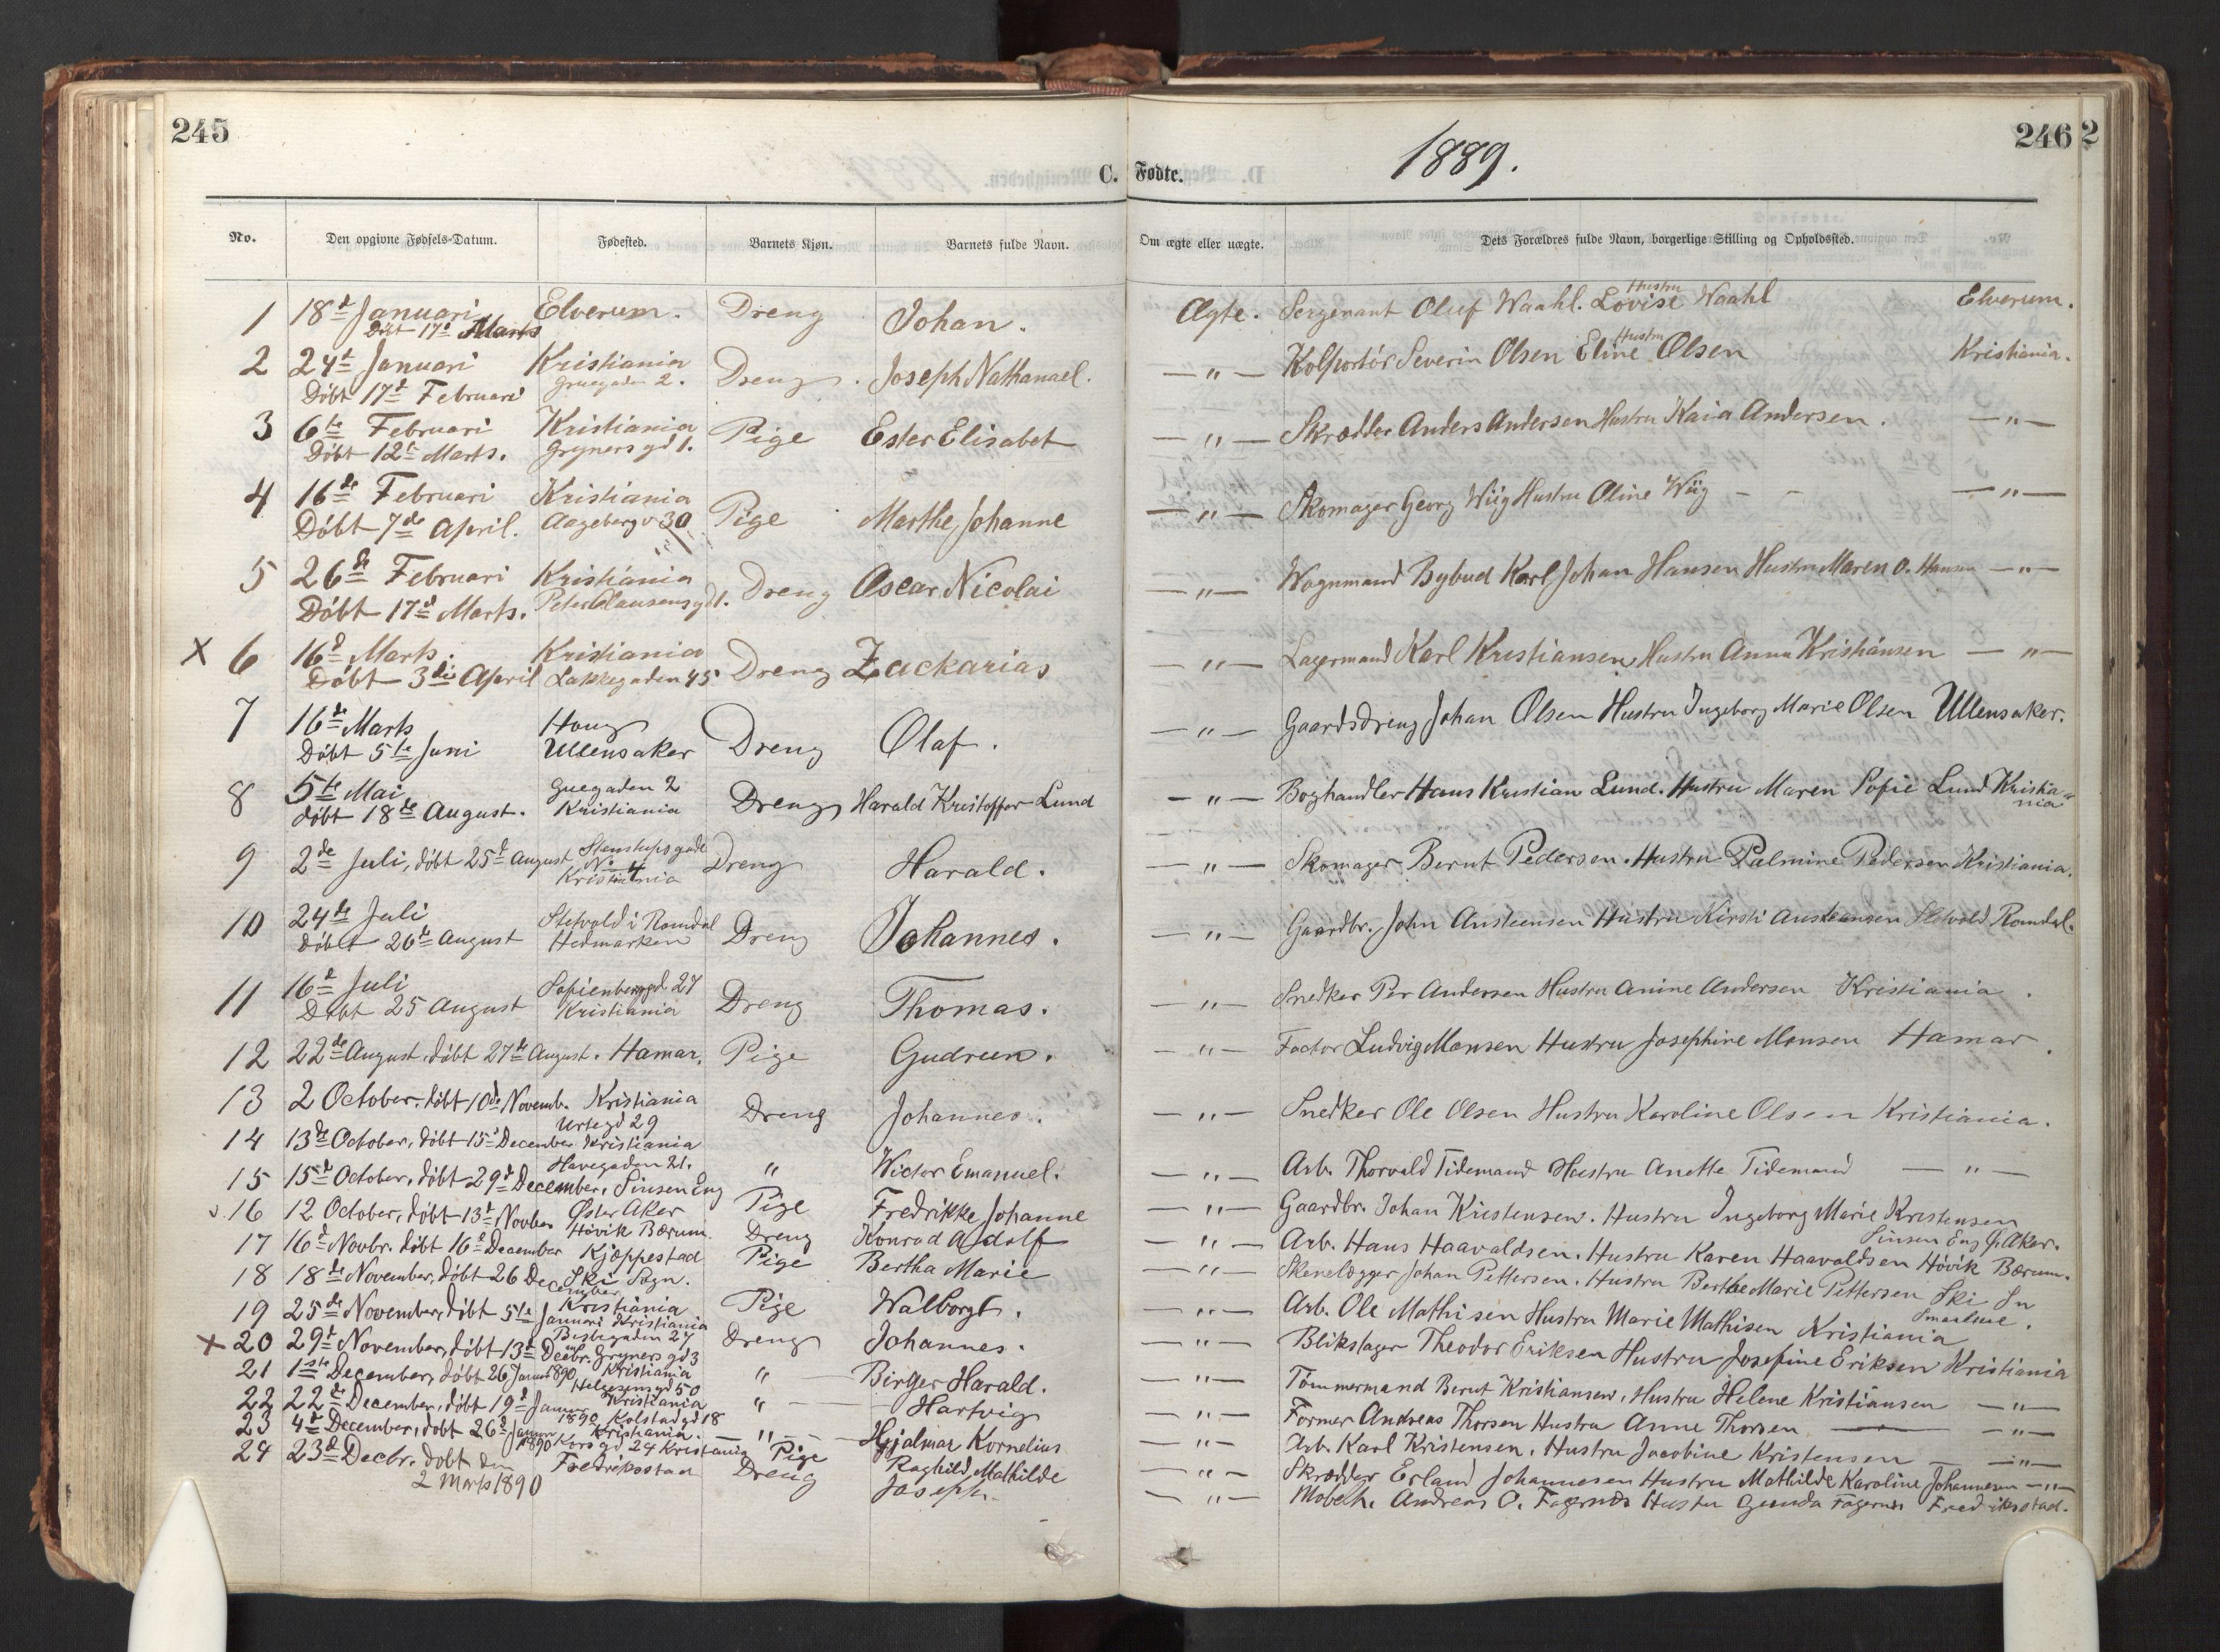 245
246
2
C. Fødte.
1889.
No.
Den opgivne Fødsels-Datum.
Fødested.
Barnets Kjøn.
Barnets fulde Navn.
Om ægte eller uægte.
Dets Forældres fulde Navn, borgerlige Stilling og Opholdssted.
1 18d Januari Elverum. Dreng Johan. Ægte. Sergenant Oluf Waahl. Hustru Lovise Waahl Elverum.
Döbt 17d Marts
2 24d Januari Kristiania Dreng. Joseph Nathanael. —"— Kolportör Severin Olsen Hustru Eline Olsen Kristiania.
Döbt 17d Februari Gruegaden 2.
3 6te Februari Kristiania Pige Ester Elisabet —"— Skrædder Anders Andersen Hustru Kaia Andersen. —"—
Döbt 12te Marts. Gryners gd 1.
4 16de Februari Kristiania Pige Marthe Johanne —"— Skomager Georg Wiig Hustru Oline Wiig - - —"—
Döbt 7de April. Aageberg v 30
5 26de Februari Kristiania Dreng Oscar Nicolai —"— Wognmand Bybud Karl Johan Hansen Hustru Maren O. Hansen —"—
Döbt 17d Marts. Peter Clausens gd 1.
X 6 16d Marts. Kristiania Dreng Zackarias —"— Lagermand Karl Kristiansen Hustru Anna Kristiansen —"—
Döbt 3die April Lakkegaden 45
7 16de Marts Haug Dreng Olaf. —"— Gaardsdreng Johan Olsen Hustru Ingeborg Marie Olsen Ullensaker.
Döbt 5te Juni Ullensaker
8 5te Mai Guegaden 2 Dreng Harald Kristoffer Lund —"— Boghandler Hans Kristian Lund. Hustru Maren Sofie Lund Kristia-
döbt 18de August. Kristiania nia
9 2de Juli, döbt 25d August Stenstups gade Dreng Harald. —"— Skomager Bernt Pedersen. Hustru Palmine Pedersen Kristiania.
No 4
Kristiania
10 24de Juli Sletvold i Romdal Dreng Johannes. —"— Gaardbr. John Austeensen Hustru Kirsti Austeensen Sletvold Romdal.
Döbt 26de August Hedmarken
11 16d Juli Sofienberggd. 27 Dreng Thomas. —"— Snedker Per Andersen Hustru Anine Andersen Kristiania.
Döbt 25 August Kristiania
12 22de August, döbt 27de August. Hamar. Pige Gudrun. —"— Factor Ludvig Monsen Hustru Josephine Monsen Hamar.
13 2 October. döbt 10de Novemb. Kristiania Dreng Johannes. —"— Snedker Ole Olsen Hustru Karoline Olsen Kristiania.
Urtegd 29
14 13de October, döbt 15d December Kristiania " Wictor Emanuel. —"— Arb. Thorvald Tidemand Hustru Anette Tidemand —"—
Havegaden 21.
15 15de October, döbt 29d December, Sinsen Eng Pige Fredrikke Johanne —"— Gaardbr. Johan Kristensen. Hustru Ingeborg Marie Kristensen
Øster Aker Sinsen Eng Ø. Aker.
16 12 October, döbt 13d Novber Hövik Bærum. Dreng Konrad Adolf —"— Arb. Hans Haavaldsen. Hustru Karen Haavaldsen Hövik Bærum.
17 16d Novbr. döbt 16d December Kjæppestad Pige Bertha Marie —"— Skenelægger Johan Pettersen. Hustru Berthe Marie Pettersen Ski Sn
Ski Sogn.
18 18de November, döbt 26 December Kristiania Pige Walborg. —"— Arb. Ole Mathisen Hustru Marie Mathisen Kristiania
19 25de November, döbt 5te Januari Kristiania Dreng Johannes. —"— Blikslager Theodor Eriksen Hustru Josefine Eriksen Kristiania
Beslegaden 27
x 20 29d November, döbt 13d Decbr. Gryners gd 3 " Birger Harald. —"— Tömmermand Bernt Kristiansen, Hustru Helene Kristiansen —"—
Kristiania
21 1ste December, döbt 26 Januar 1890 Helgesens gd 50 " Hartvig —"— Former Andreas Thorsen Hustru Anne Thorsen —"—
Kristiania
22 22de December, döbt 19d Januar 1890 Kolstad gd 18 —"— Hjalmar Kornelius —"— Arb. Karl Kristensen. Hustru Jacobine Kristensen —"—
Kristiania.
23 4de December, döbt 26d Januar 1890 Kors gd 24 Kristiania Pige Raghild Mathilde —"— Skrædder Erland Johannesen Hustru Mathilde Karoline Johannesen —"—
24 23d Decbr. döbt den Fredriksstad Dreng Joseph. —"— Mobelh. Andreas O. Fagernes Hustru Gunda Fagernes Fredriksstad.
2 Marts 1890